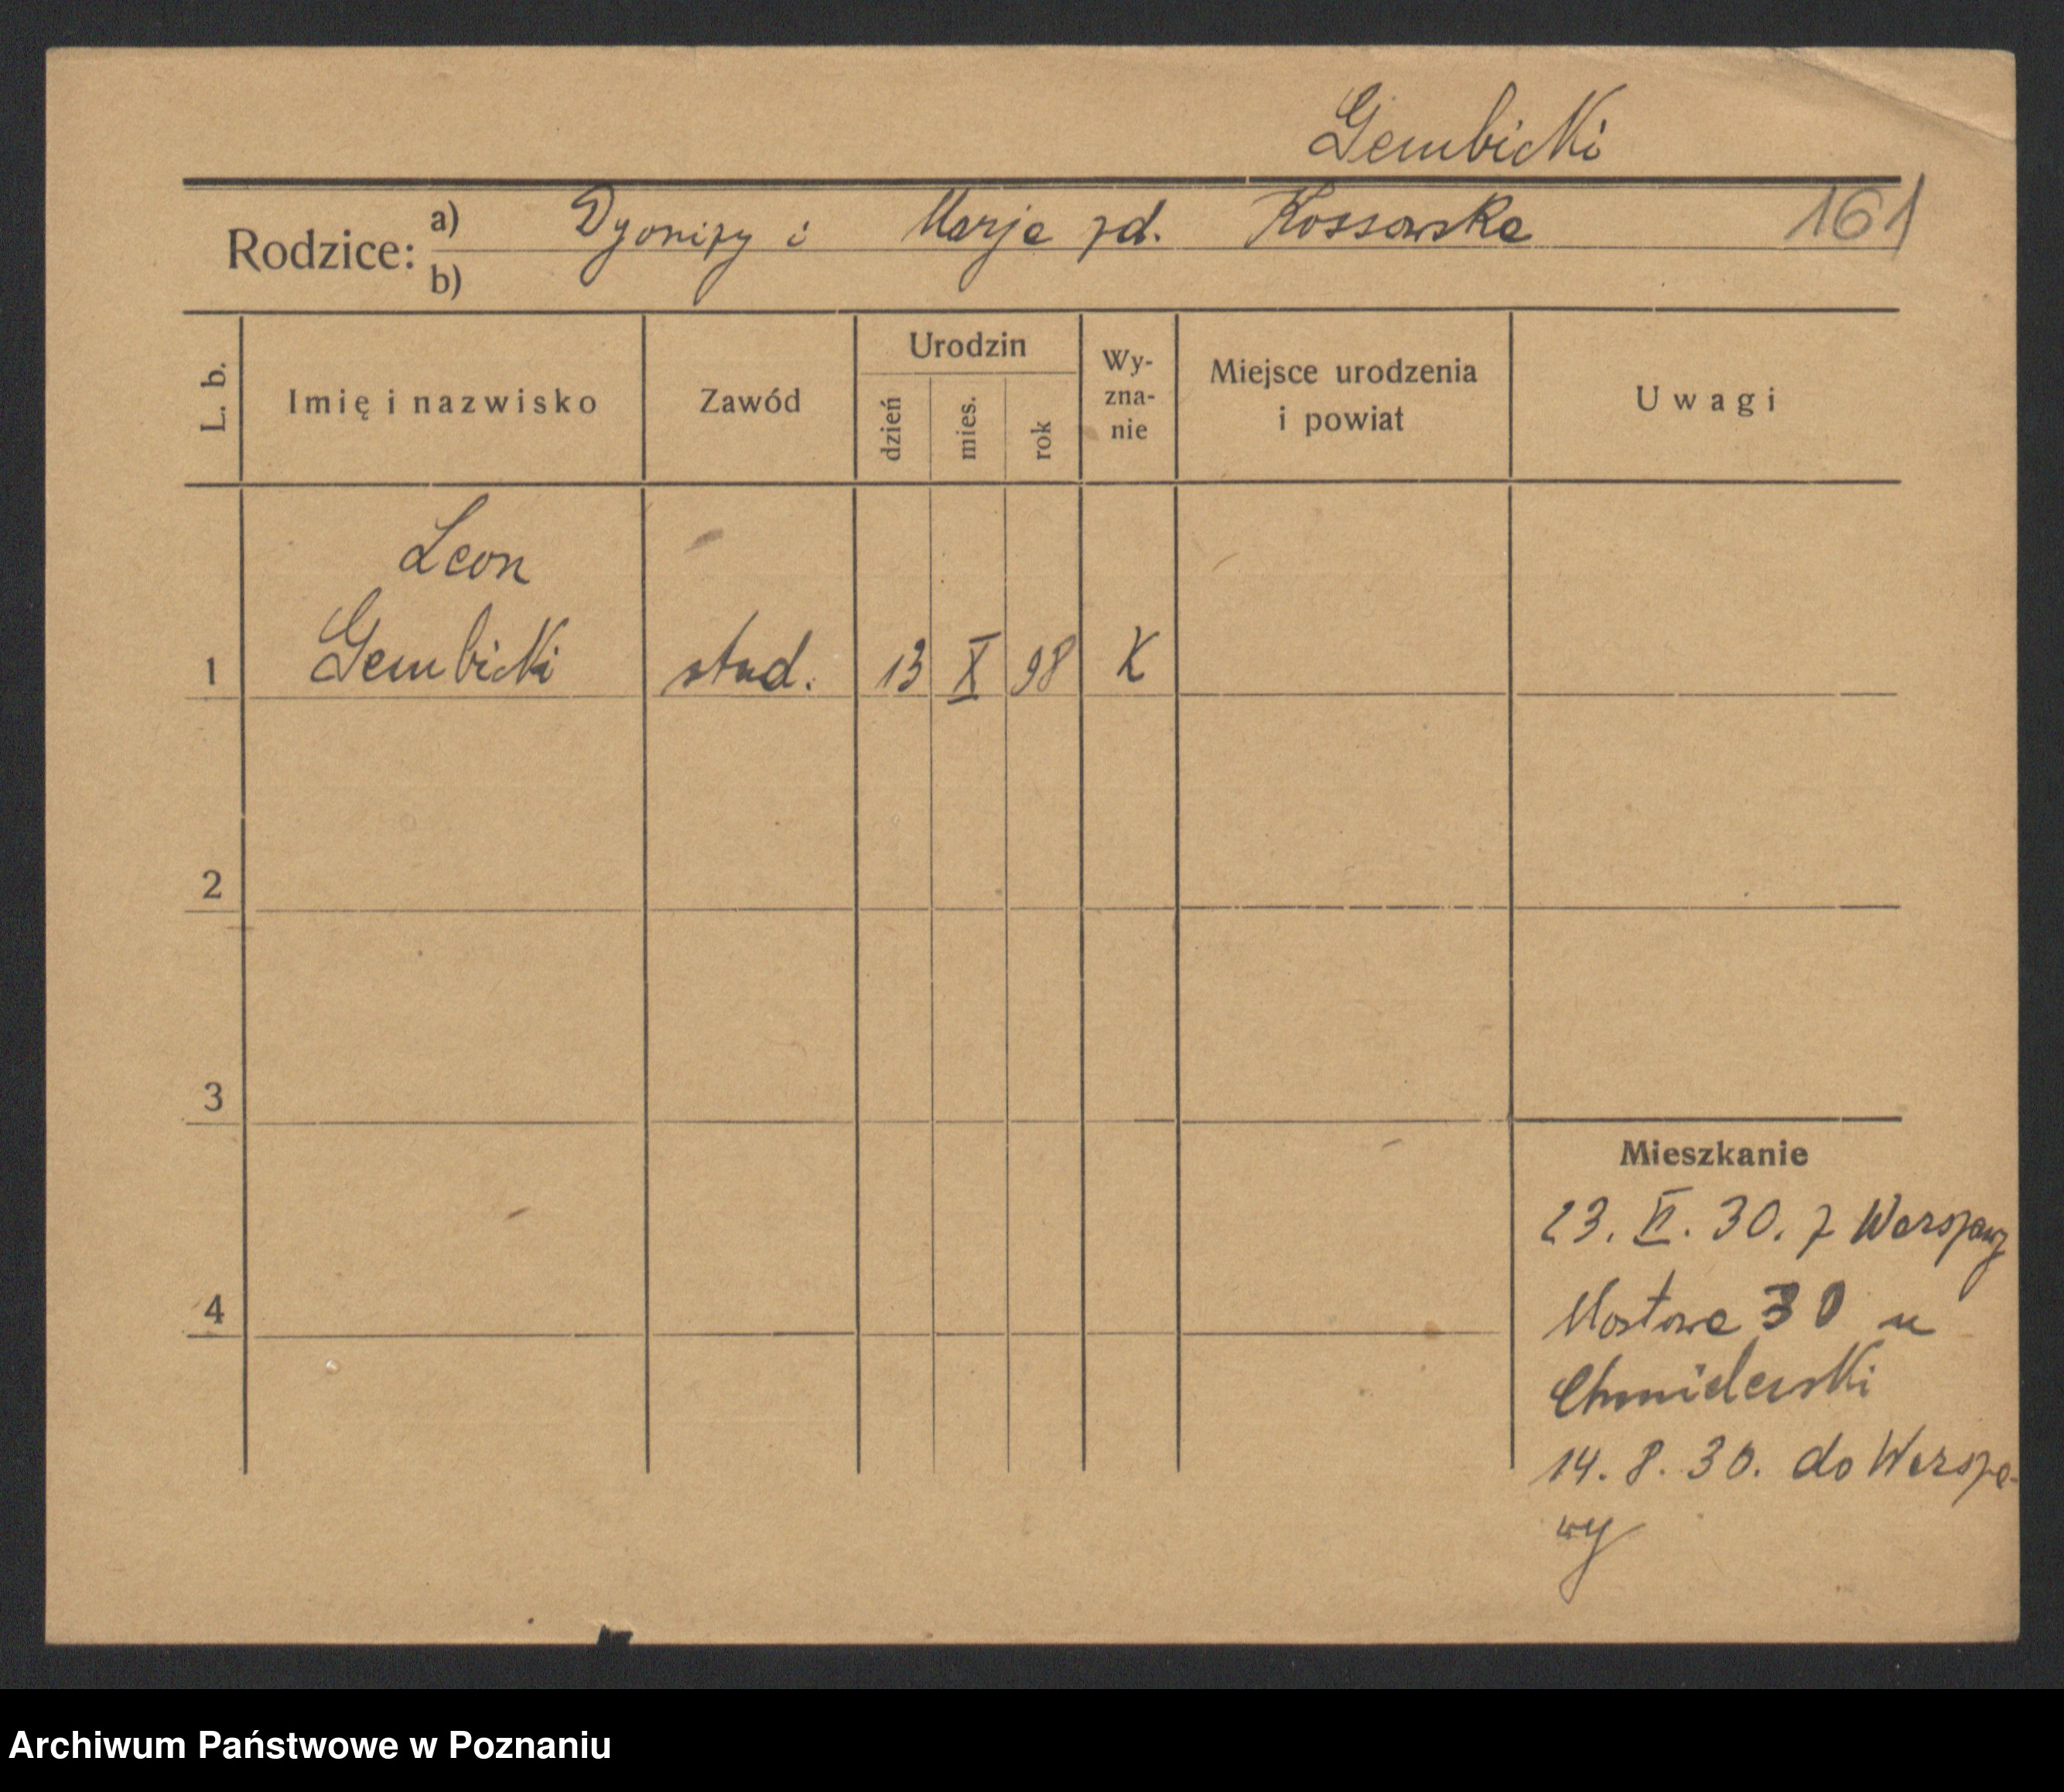 Gembicki
161
Rodzice: a) Dyonizy i Marja zd. Kossowska
b)
L. b.
Imię i nazwisko
Zawód
Urodzin
dzień
mies.
rok
Wy-
zna-
nie
Miejsce urodzenia
i powiat
Uwagi
Leon
1 Gembicki stud. 13 X 98 K
2
3
4
Mieszkanie
23. VI. 30. z Warszawy
Mostowa 30 u
Chmielewski
14. 8. 30. do Warsza-
wy
Archiwum Państwowe w Poznaniu